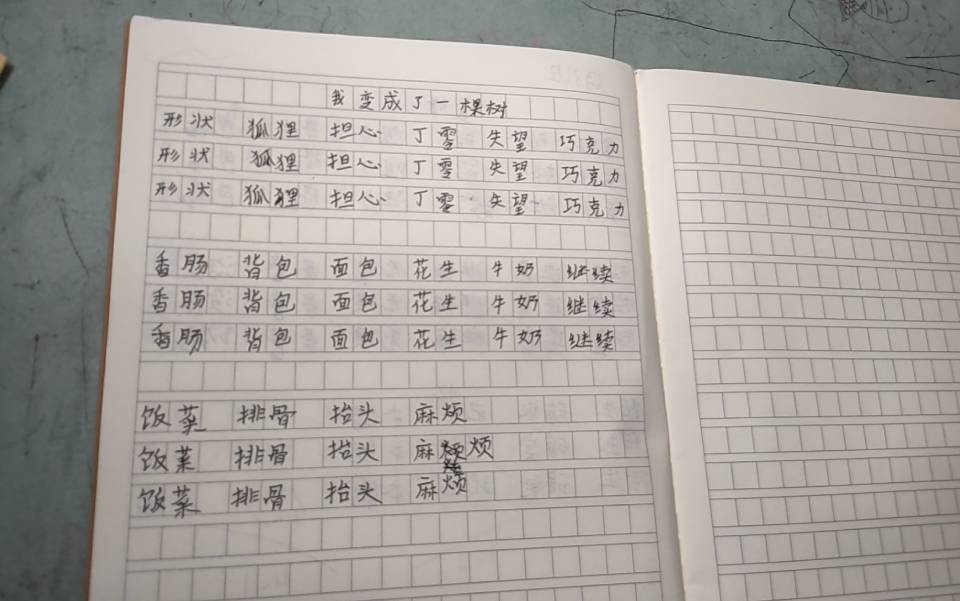 我变成了一棵树
形状 狐狸 担心 丁零 失望 巧克力
形状 狐狸 担心 丁零 失望 巧克力
形状 狐狸 担心 丁零 失望 巧克力
香肠 背包 面包 花生 牛奶 继续
香肠 背包 面包 花生 牛奶 继续
香肠 背包 面包 花生 牛奶 继续
饭菜 排骨 抬头 麻烦
饭菜 排骨 抬头 麻烦
饭菜 排骨 抬头 麻烦